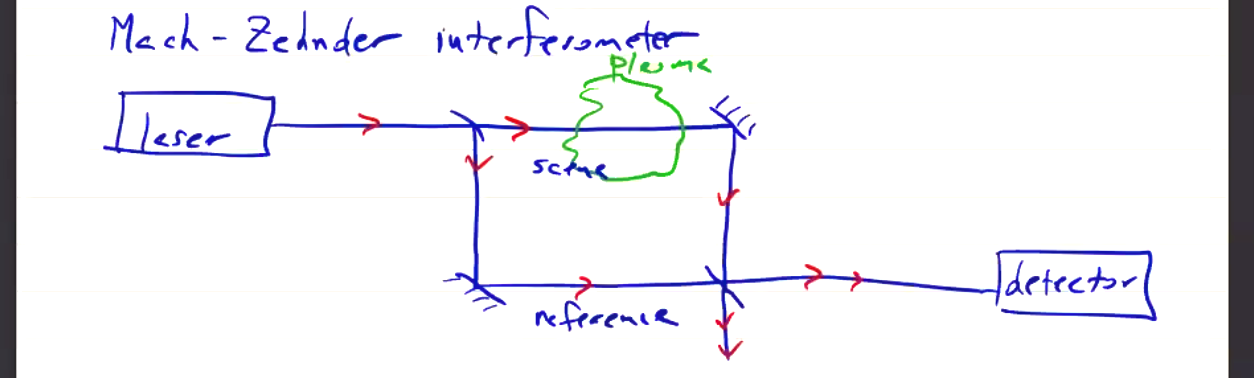 Mach-Zehnder interferometer
plasma
laser
scene
reference
detector